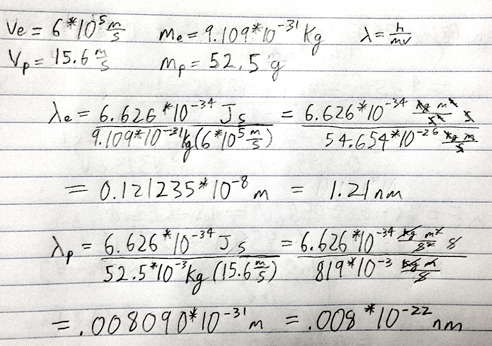 Ve = 6*10^5 m/s   me = 9.109*10^-31 Kg   λ = h/mv
Vp = 15.6 m/s   mp = 52.5 g
λe = 6.626*10^-34 Js / 9.109*10^-31 kg (6*10^5 m/s) = 6.626*10^-34 kg m²/s² s / 54.654*10^-26 kg m/s
= 0.121235*10^-8 m = 1.21 nm
λp = 6.626*10^-34 Js / 52.5*10^-3 Kg (15.6 m/s) = 6.626*10^-34 kg m²/s² s / 819*10^-3 kg m/s
= .008090*10^-31 m = .008*10^-22 nm